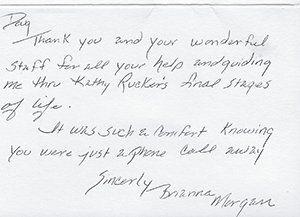 Doug
Thank you and your wonderful
staff for all your help and guiding
me thru Kathy Rucker's final stages
of life.
It was such a comfort knowing
you were just a phone call away
Sincerly Brianna
Morgan